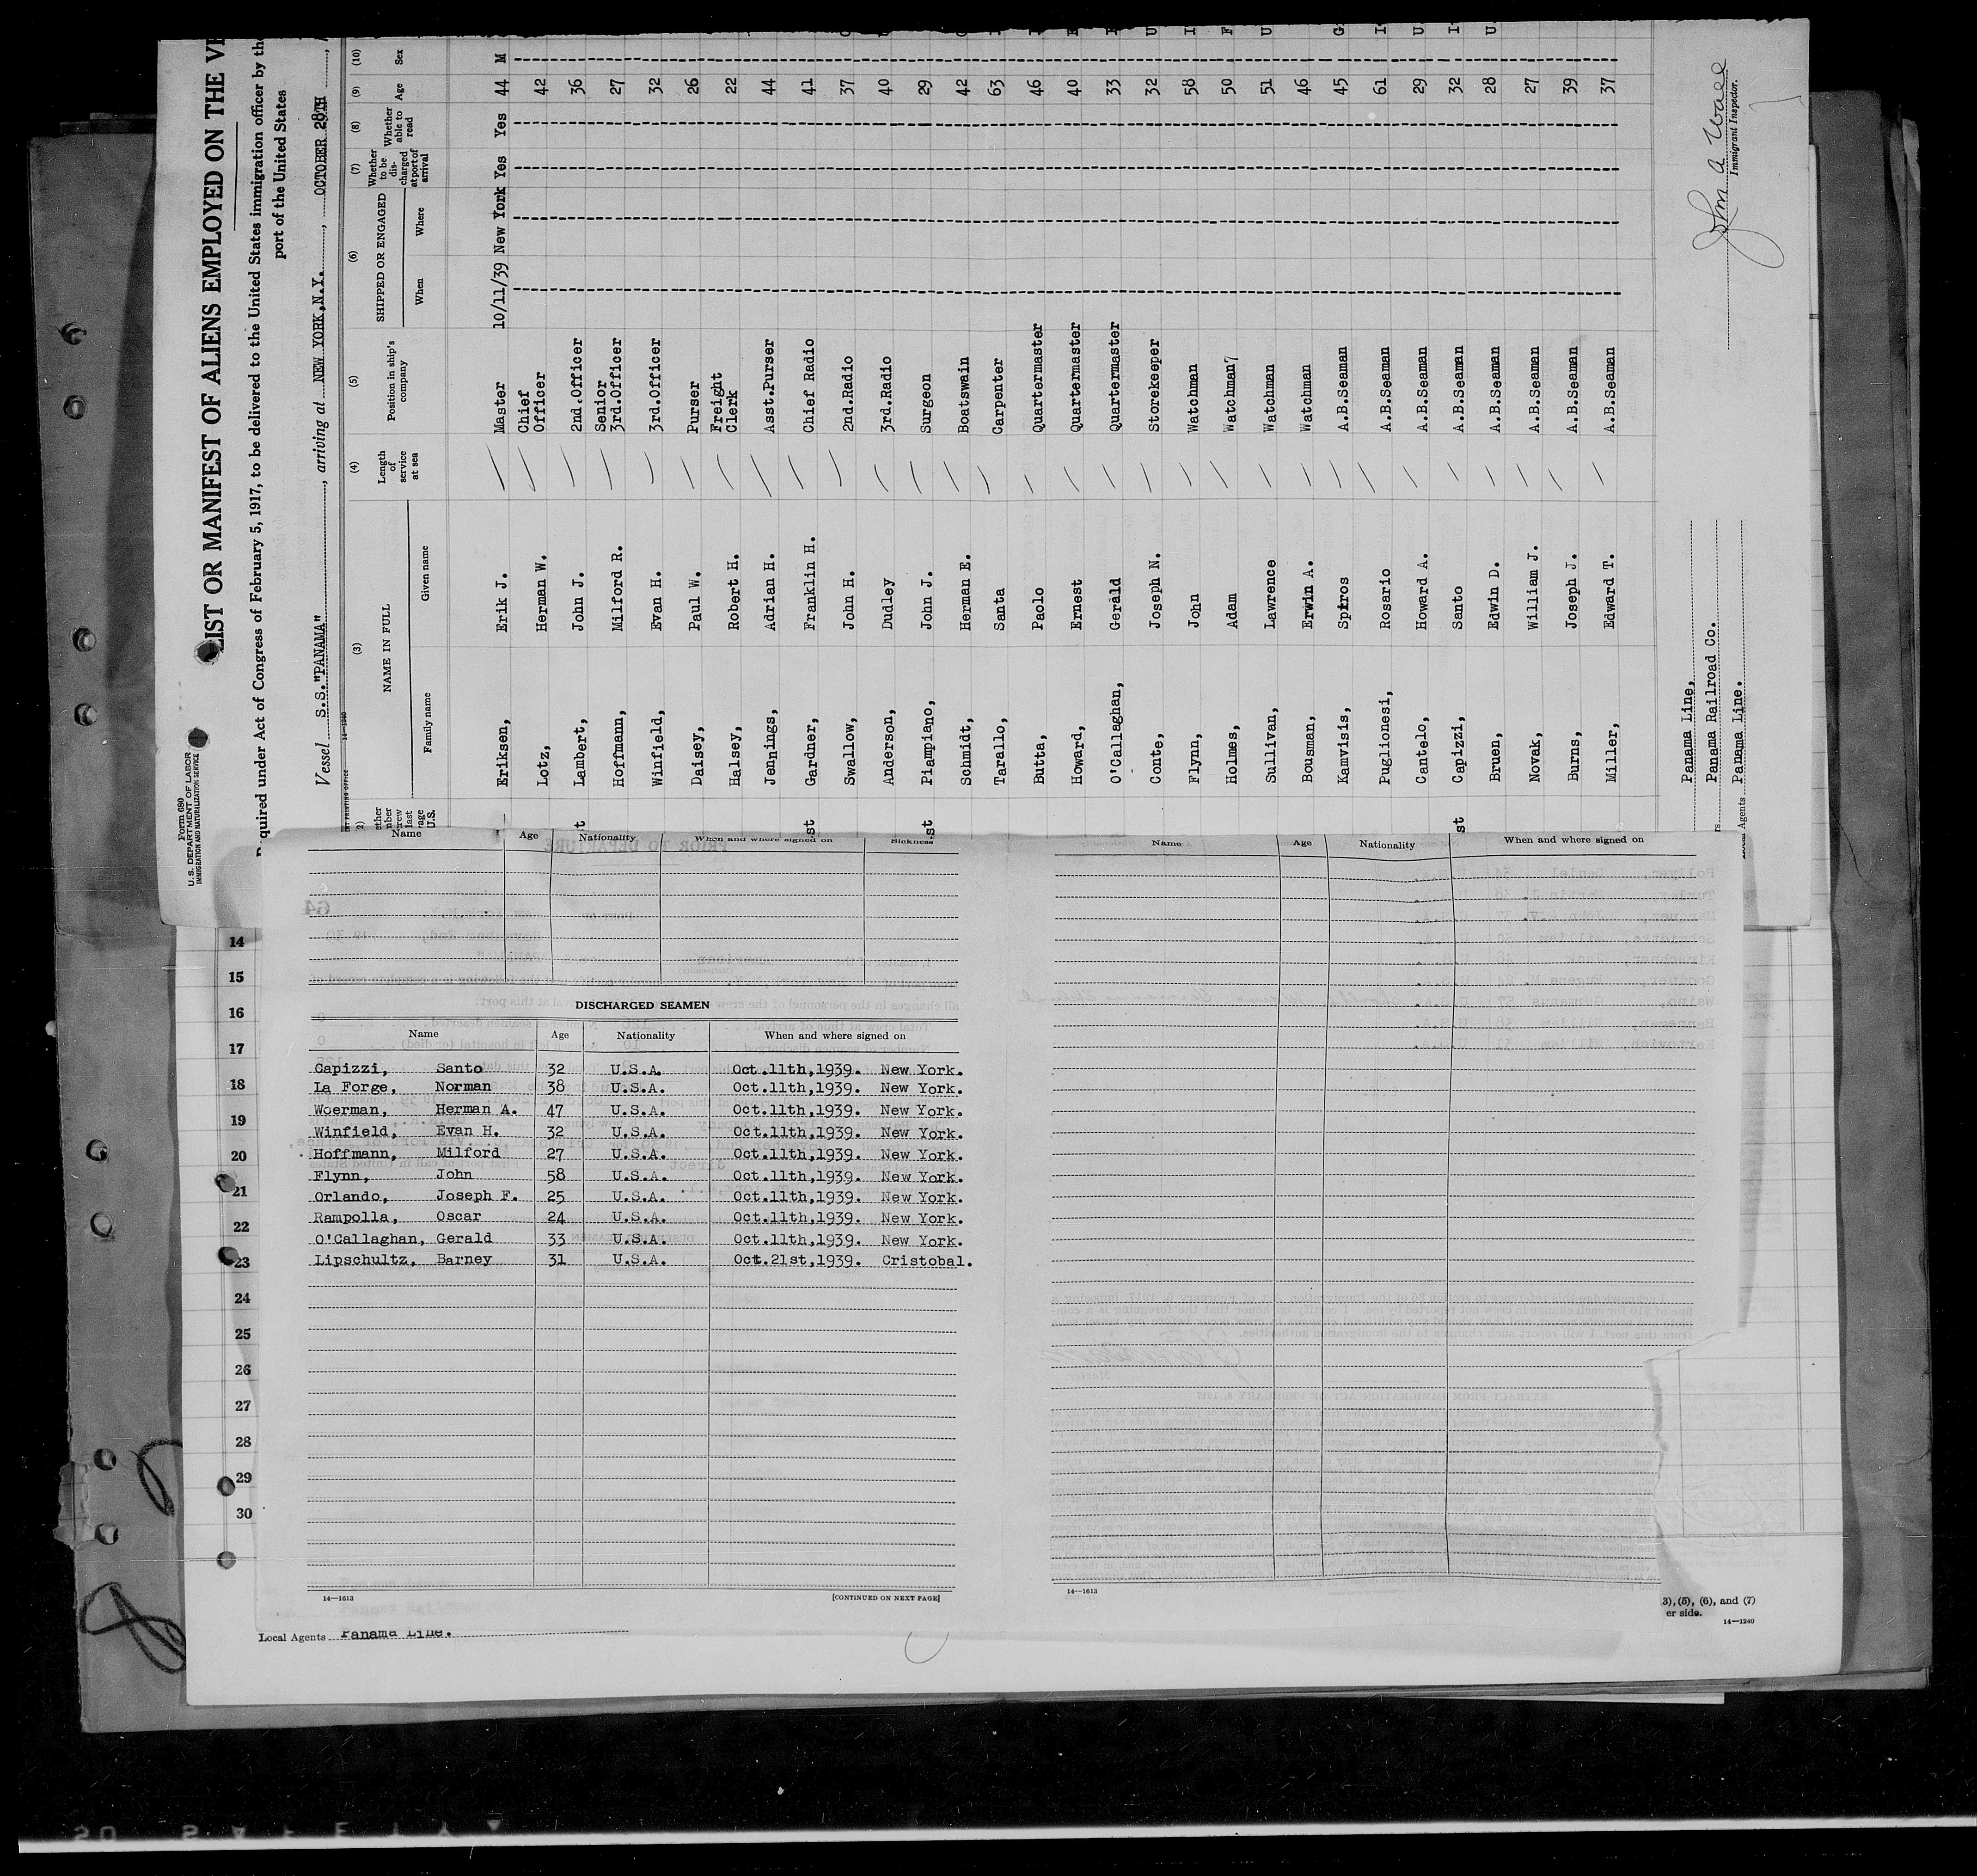 Form 680
U.S. DEPARTMENT OF LABOR
IMMIGRATION AND NATURALIZATION SERVICE
LIST OR MANIFEST OF ALIENS EMPLOYED ON THE
Required under Act of Congress of February 5, 1917, to be delivered to the United States immigration officer by the
port of the United States
Vessel S.S."PANAMA", arriving at NEW YORK,N.Y., OCTOBER 28TH
(3) (4) (5) (6) (7) (8) (9) (10)
NAME IN FULL Length of service at sea Position in ship's company SHIPPED OR ENGAGED Whether to be discharged at port of arrival Whether able to read Age Sex
Family name Given name When Where
Eriksen, Erik J. Master 10/11/39 New York Yes Yes 44 M
Lotz, Herman W. Chief Officer 42
Lambert, John J. 2nd.Officer 36
Hoffmann, Milford R. Senior 3rd.Officer 27
Winfield, Evan H. 3rd.Officer 32
Daisey, Paul W. Purser 26
Halsey, Robert H. Freight Clerk 22
Jennings, Adrian H. Asst.Purser 44
Gardner, Franklin H. Chief Radio 41
Swallow, John H. 2nd.Radio 37
Anderson, Dudley 3rd.Radio 40
Piampiano, John J. Surgeon 29
Schmidt, Herman E. Boatswain 42
Tarello, Santa Carpenter 63
Butta, Paolo Quartermaster 46
Howard, Ernest Quartermaster 40
O'Callaghan, Gerald Quartermaster 33
Conte, Joseph N. Storekeeper 32
Flynn, John Watchman 58
Holmes, Adam Watchman7 50
Sullivan, Lawrence Watchman 51
Bousman, Erwin A. Watchman 46
Kamvisis, Spiros A.B.Seaman 45
Puglionesi, Rosario A.B.Seaman 61
Cantelo, Howard A. A.B.Seaman 29
Capizzi, Santo A.B.Seaman 32
Bruen, Edwin D. A.B.Seaman 28
Novak, William J. A.B.Seaman 27
Burns, Joseph J. A.B.Seaman 39
Miller, Edward T. A.B.Seaman 37
Panama Line,
Panama Railroad Co.
Agents Panama Line.
John A
Immigrant Inspector.
Name Age Nationality When and where signed on Sickness
DISCHARGED SEAMEN
Name Age Nationality When and where signed on
Capizzi, Santo 32 U.S.A. Oct.11th,1939. New York.
La Forge, Norman 38 U.S.A. Oct.11th,1939. New York.
Woerman, Herman A. 47 U.S.A. Oct.11th,1939. New York.
Winfield, Evan H. 32 U.S.A. Oct.11th,1939. New York.
Hoffmann, Milford 27 U.S.A. Oct.11th,1939. New York.
Flynn, John 58 U.S.A. Oct.11th,1939. New York.
Orlando, Joseph F. 25 U.S.A. Oct.11th,1939. New York.
Rampolla, Oscar 24 U.S.A. Oct.11th,1939. New York.
O'Callaghan, Gerald 33 U.S.A. Oct.11th,1939. New York.
Lipschultz, Barney 31 U.S.A. Oct.21st,1939. Cristobal.
14—1613 [CONTINUED ON NEXT PAGE]
Name Age Nationality When and where signed on
14—1613
14
15
16
17
18
19
20
21
22
23
24
25
26
27
28
29
30
Local Agents Panama Line.
3), (5), (6), and (7)
er side.
14—1240